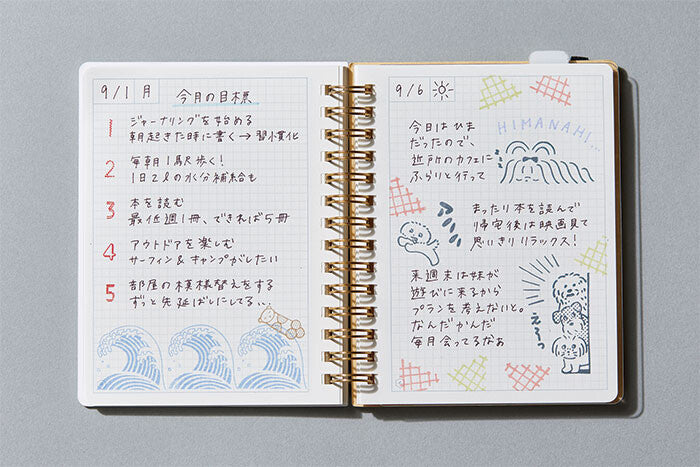 9/1 月
今月の目標
1 ジャーナリングを始める
朝起きた時に書く→習慣化
2 毎朝1駅歩く!
1日2ℓの水分補給も
3 本を読む
最低週1冊、できれば5冊
4 アウトドアを楽しむ
サーフィン&キャンプがしたい
5 部屋の模様替えをする
ずっと先延ばしにしてる...
9/6
HIMANAHI...
今日はひま
だったので、
近所のカフェに
ふらりと行って
まったり本を読んで
帰宅後は映画見て
思いきりリラックス!
来週末は妹が
遊びに来るから
プランを考えないと。
なんだかんだ
毎月会ってるなぁ
えーっ